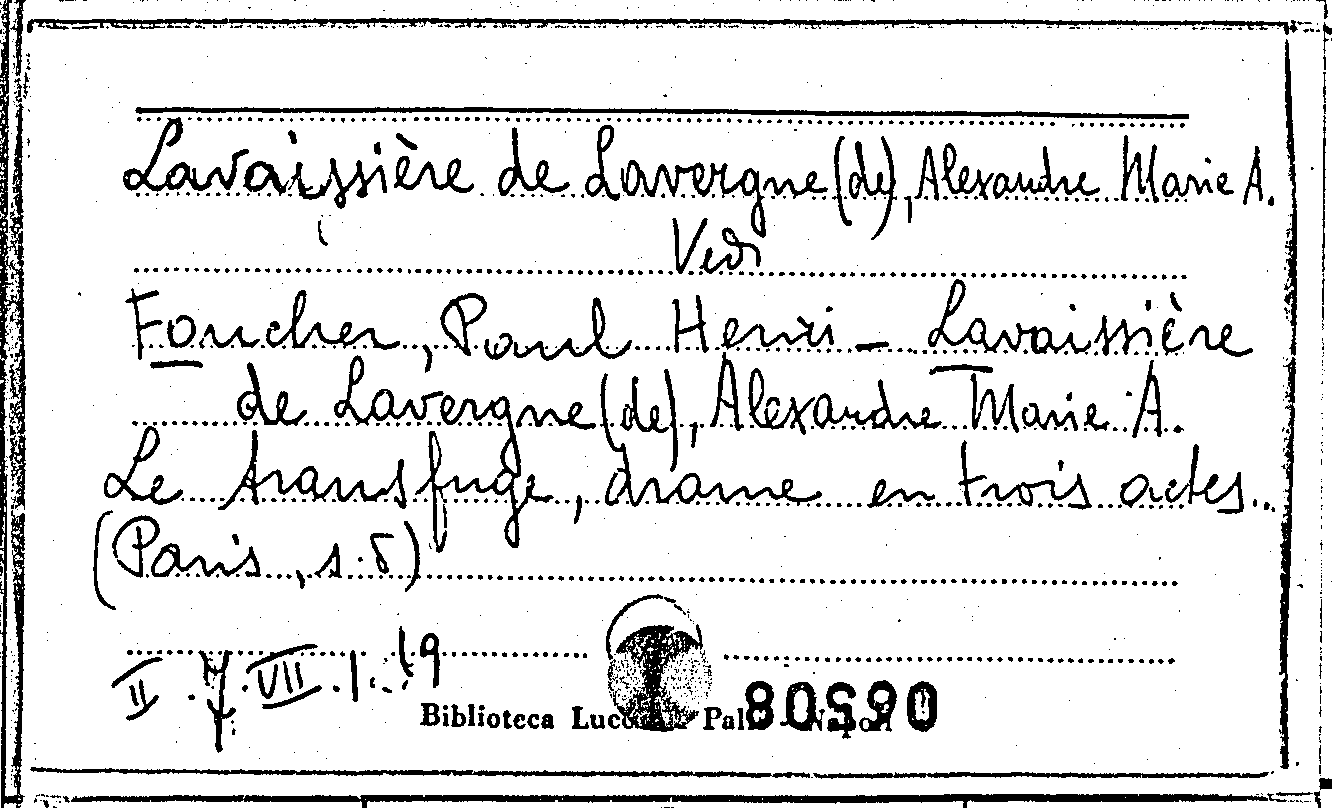 Lavaissière de Lavergne (de), Alexandre Marie A.
Vedi
Foucher, Paul Henri - Lavaissière
de Lavergne (de), Alexandre Marie A.
Le transfuge, drame en trois actes..
(Paris, s.d)
II . . VII . 1 . 19
Biblioteca Napoli